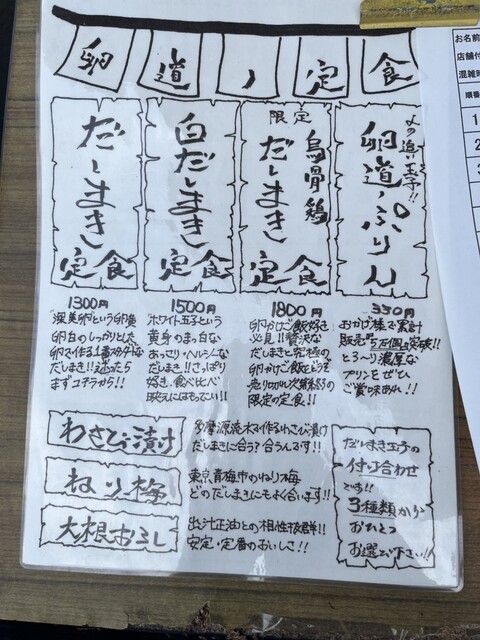 卵道ノ定食
だしまき定食
1300円
"深美卵"という卵黄
卵白のしっかりとした
卵でイ作る1番スタンダードな
だしまき!!迷ったら
まずコチラから!!
白だしまき定食
1500円
"ホワイト玉子"という
黄身のまっ白な
あっさり・ヘルシーな
だしまき!!さっぱり
好き、食べ比べ
映えにはもってこい!!
限定
烏骨鶏だしまき定食
1800円
卵かけご飯好き
必見!!贅沢な
だしまきと究極の
卵かけご飯をどうぞ
売り切れ次第終了の
限定の定食!!
〆の追い玉子!!
卵道ノぷりん
350円
おかげ様で累計
販売5万個突破!!
とろ〜り濃厚な
プリンをぜひ
ご賞味あれ!!
わさび漬け
多摩源流水でイ作るわさび漬け
だしまきに合う?合うんです!!
ねり梅
東京青梅市のねり梅
どのだしまきにもよく合います!!
大根おろし
出汁正油との相性抜群!!
安定・定番のおいしさ!!
だしまき玉子の
付け合わせ
です!!
3種類から
おひとつ
お選び下さい!!
お名前
店舗付
混雑時
順番
1
2